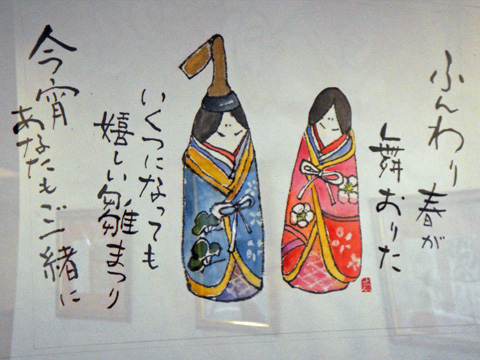 ふんわり春が
舞おりた
いくつになっても
嬉しい雛まつり
今宵
あなたもご一緒に